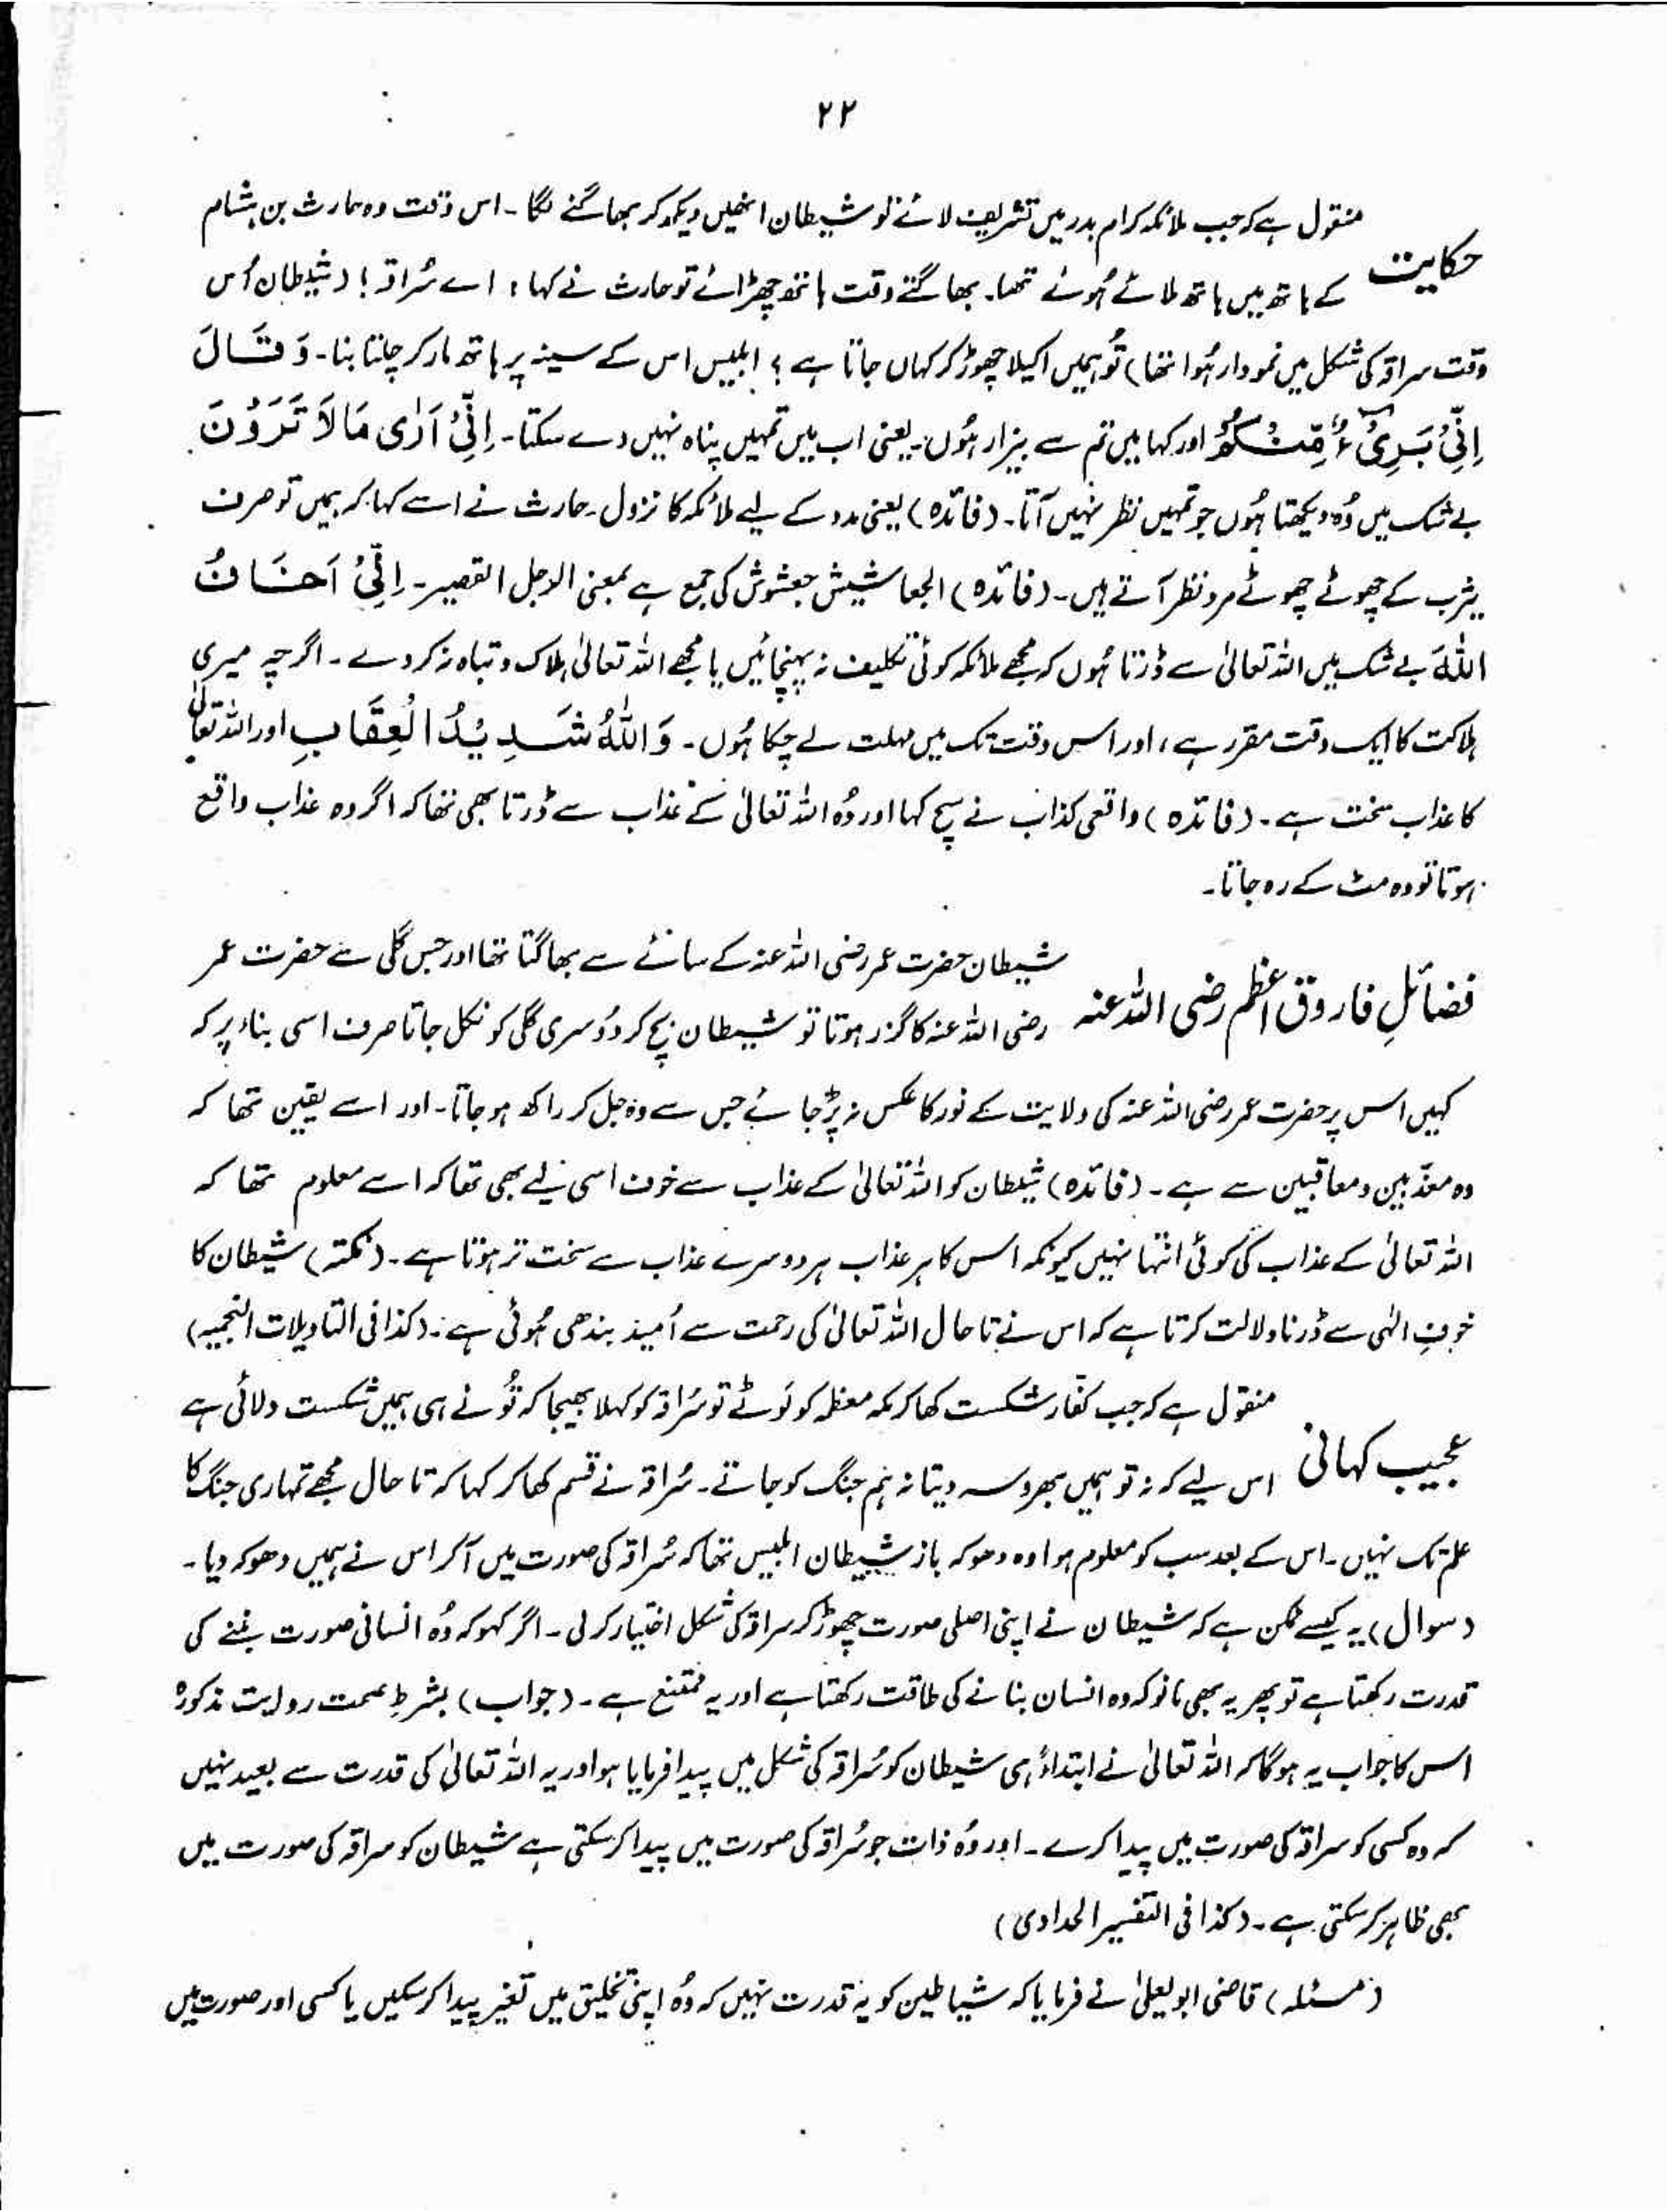 ۲۲
منقول ہے کہ جب ملائکہ کرام بدر میں تشریف لائے تو شیطان انھیں دیکھ کر بھاگنے لگا۔ اس وقت وہ حارث بن ہشام
حکایت
کے ہاتھ میں ہاتھ ملائے ہُوئے تھا۔ بھاگتے وقت ہاتھ چھڑائے تو حارث نے کہا: اے سُراقہ! (شیطان اُس
وقت سراقہ کی شکل میں نمودار ہُوا تھا) تُو ہمیں اکیلا چھوڑ کر کہاں جاتا ہے؟ ابلیس اس کے سینہ پر ہاتھ مار کر چلتا بنا۔ وَقَالَ
اِنِّیْ بَرِیْٓءٌ مِّنْکُمْ اور کہا میں تم سے بیزار ہُوں۔ یعنی اب میں تمہیں پناہ نہیں دے سکتا۔ اِنِّیْٓ اَرٰی مَا لَا تَرَوْنَ
بے شک میں وُہ دیکھتا ہُوں جو تمہیں نظر نہیں آتا۔ (فائدہ) یعنی مدد کے لیے ملائکہ کا نزول۔ حارث نے اسے کہا کہ ہمیں تو صرف
یثرب کے چھوٹے چھوٹے مرد نظر آتے ہیں۔ (فائدہ) الجعاشیش جعشوش کی جمع ہے بمعنی الرجل القصیر۔ اِنِّیْٓ اَخَافُ
اللّٰہَ بے شک میں اللہ تعالیٰ سے ڈرتا ہُوں کہ مجھے ملائکہ کوئی تکلیف نہ پہنچائیں یا مجھے اللہ تعالیٰ ہلاک و تباہ نہ کر دے۔ اگرچہ میری
ہلاکت کا ایک وقت مقرر ہے، اور اس وقت تک میں مہلت لے چکا ہُوں۔ وَاللّٰہُ شَدِیْدُ الْعِقَابِ اور اللہ تعالیٰ
کا عذاب سخت ہے۔ (فائدہ) واقعی کذاب نے سچ کہا اور وُہ اللہ تعالیٰ کے عذاب سے ڈرتا بھی تھا کہ اگر وہ عذاب واقع
ہوتا تو وہ مٹ کے رہ جاتا۔
شیطان حضرت عمر رضی اللہ عنہ کے سائے سے بھاگتا تھا اور جس گلی سے حضرت عمر
فضائلِ فاروق اعظم رضی اللہ عنہ
رضی اللہ عنہ کا گزر ہوتا تو شیطان بچ کر دُوسری گلی کو نکل جاتا صرف اسی بناء پر کہ
کہیں اس پر حضرت عمر رضی اللہ عنہ کی ولایت کے نور کا عکس نہ پڑ جائے جس سے وہ جل کر راکھ ہو جاتا۔ اور اسے یقین تھا کہ
وہ معذّبین و معاقبین سے ہے۔ (فائدہ) شیطان کو اللہ تعالیٰ کے عذاب سے خوف اسی لیے بھی تھا کہ اسے معلوم تھا کہ
اللہ تعالیٰ کے عذاب کی کوئی انتہا نہیں کیونکہ اس کا ہر عذاب ہر دوسرے عذاب سے سخت تر ہوتا ہے۔ (نکتہ) شیطان کا
خوفِ الٰہی سے ڈرنا دلالت کرتا ہے کہ اس نے تاحال اللہ تعالیٰ کی رحمت سے اُمید بندھی ہُوئی ہے۔ (کذا فی التاویلات النجمیہ)
منقول ہے کہ جب کفّار شکست کھا کر مکہ معظمہ کو لَوٹے تو سُراقہ کو کہلا بھیجا کہ تُو نے ہی ہمیں شکست دلائی ہے
عجیب کہانی
اس لیے کہ نہ تو ہمیں بھروسہ دیتا نہ ہم جنگ کو جاتے۔ سُراقہ نے قسم کھا کر کہا کہ تا حال مجھے تمہاری جنگ کا
علم تک نہیں۔ اس کے بعد سب کو معلوم ہوا وہ دھوکہ باز شیطان ابلیس تھا کہ سُراقہ کی صورت میں آ کر اس نے ہمیں دھوکہ دیا۔
(سوال) یہ کیسے ممکن ہے کہ شیطان نے اپنی اصلی صورت چھوڑ کر سراقہ کی شکل اختیار کر لی۔ اگر کہو کہ وُہ انسانی صورت بننے کی
قدرت رکھتا ہے تو پھر یہ بھی مانو کہ وہ انسان بنانے کی طاقت رکھتا ہے اور یہ ممتنع ہے۔ (جواب) بشرطِ صحت روایت مذکورہ
اس کا جواب یہ ہو گا کہ اللہ تعالیٰ نے ابتداءً ہی شیطان کو سُراقہ کی شکل میں پیدا فرمایا ہو اور یہ اللہ تعالیٰ کی قدرت سے بعید نہیں
کہ وہ کسی کو سراقہ کی صورت میں پیدا کرے۔ اور وُہ ذات جو سُراقہ کی صورت میں پیدا کر سکتی ہے شیطان کو سراقہ کی صورت میں
بھی ظاہر کر سکتی ہے۔ (کذا فی التفسیر الحدادی)
(مسئلہ) قاضی ابو یعلیٰ نے فرمایا کہ شیاطین کو یہ قدرت نہیں کہ وُہ اپنی تخلیق میں تغیر پیدا کر سکیں یا کسی اور صورت میں